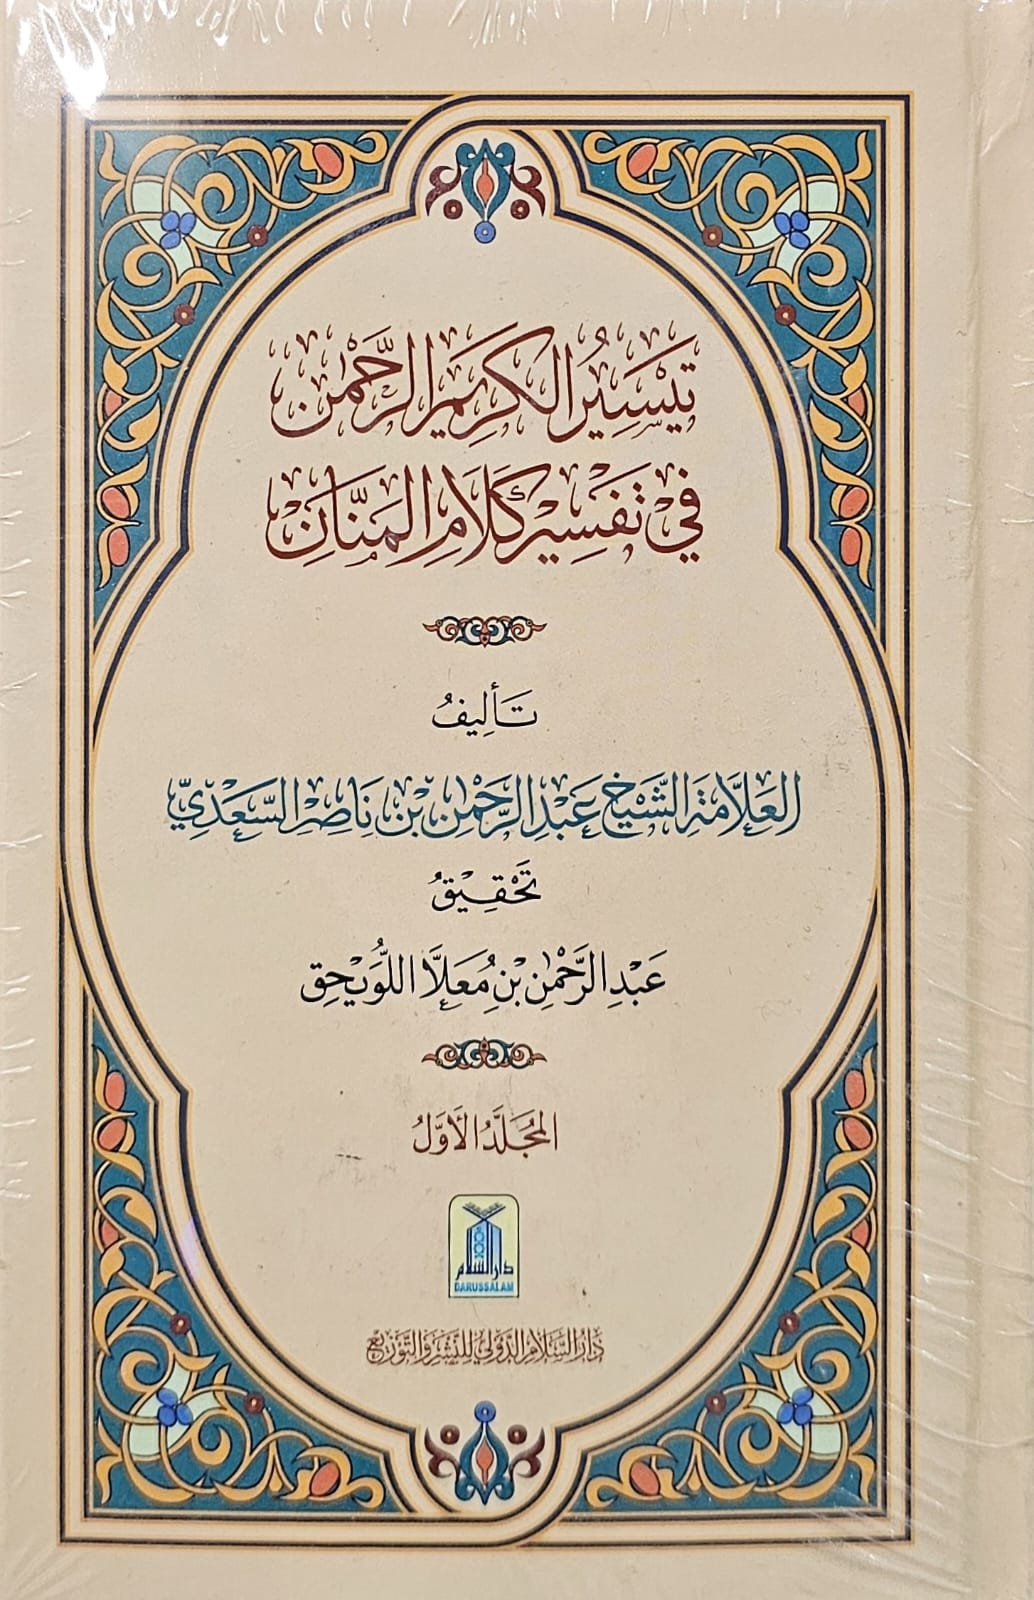 تَيْسِيرُ الكَرِيمِ الرَّحْمٰنِ
فِي تَفْسِيرِ كَلَامِ المَنَّانِ
تَأْلِيفُ
العَلَّامَةِ الشَّيْخِ عَبْدِ الرَّحْمٰنِ بْنِ نَاصِرِ السَّعْدِيِّ
تَحْقِيقُ
عَبْدِ الرَّحْمٰنِ بْنِ مُعَلَّا اللُّوَيْحِق
المُجَلَّدُ الأَوَّلُ
دار السلام
DARUSSALAM
دَارُ السَّلَامِ الدَّوْلِي لِلنَّشْرِ وَالتَّوْزِيعِ